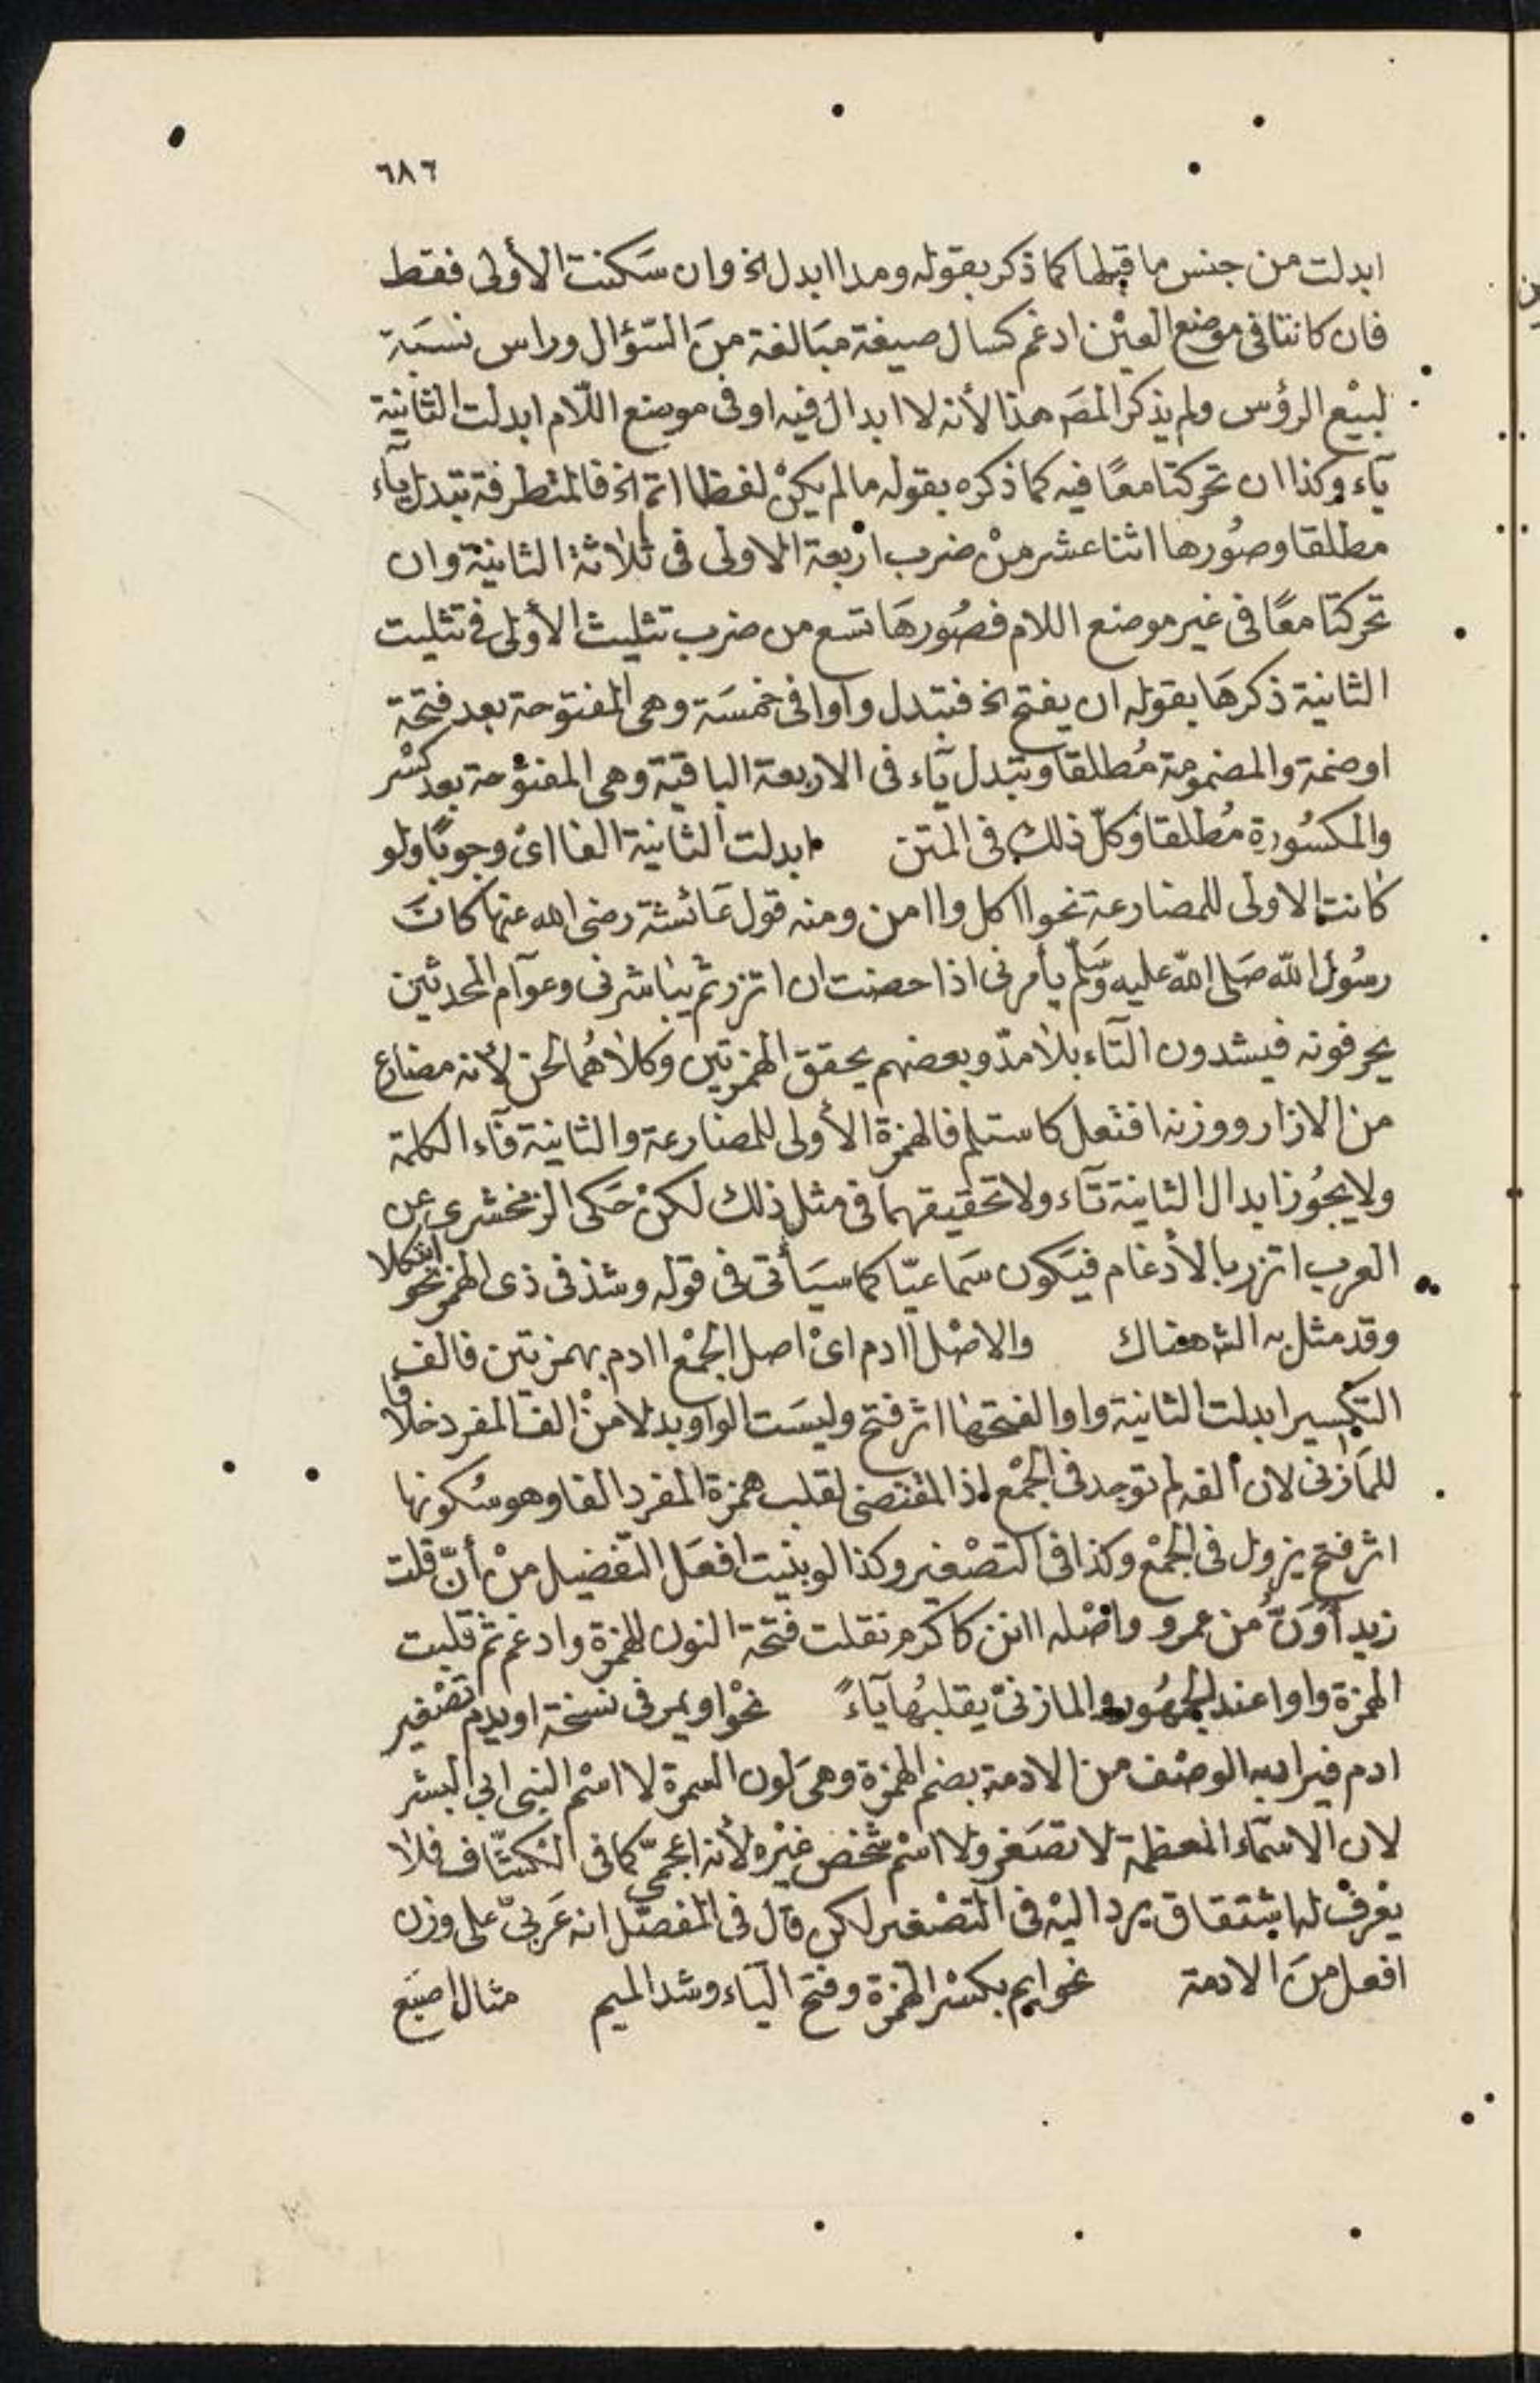 ٦٨٦
ابدلت من جنس ما قبلها كما ذكر بقوله ومدا ابدل الخ وان سَكنت الأولى فقط
فان كانتا فى موضع العيْن ادغم كسال صيغة مبَالغة منَ السّؤال وراس نسبَة
لبيْع الرؤس ولم يذكر المصَ هذا لأنه لا ابدال فيه او فى موضع اللّام ابدلت الثانية
يآء وكذا ان تحركتا معًا فيه كما ذكره بقوله ما لم يكنْ لفظا اتم الخ فالمتطرفة تبدل يآء
مطلقا وصُورها اثنا عشر منْ ضرب اربعة الاولى فى ثلاثة الثانية وان
تحركتا معًا فى غير موضع اللام فصُورهَا تسع من ضرب تثليث الأولى فى تثليث
الثانية ذكرهَا بقوله ان يفتح الخ فتبدل واوا فى خمسَة وهى المفتوحة بعد فتحة
او ضمة والمضمومة مُطلقا وتبدل يآء فى الاربعة الباقية وهى المفتوْحة بعد كسْر
والمكسُورة مُطلقا وَكلّ ذلك فى المتن ابدلت الثانية الفا اىْ وجوبًا ولو
كانت الاولى للمضارعة نحو ااكل واامن ومنه قول عَائشة رضى الله عنها كانَ
رسُول اللّه صَلى اللّه عليه وَسَلّم يأمرنى اذا حضت ان اتزر ثم يباشرنى وعوآم المحدثين
يحرفونه فيشدون التآء بلا مدّ وبعضهم يحقق الهمزتيْن وكلاهُما لحن لأنه مضارع
من الازار ووزنه افتعل كاستلم فالهمزة الأولى للمضارعة والثانية فآء الكلمة
ولا يجُوز ابدال الثانية تآء ولا تحقيقهما فى مثل ذلك لكنْ حَكى الزمخشرى عن
العرب اتزر بالأدغام فيَكون سَماعيّا كما سيَأتى فى قوله وشذ فى ذى الهمز نحو ائتكلا
وقد مثل به الشّ هناك والاصْل اادم اىْ اصل الجمْع اادم بهمزتين فالف
التكسير ابدلت الثانية واوا لفتحها اثر فتح وليسَت الواو بدلا منْ الف المفرد خلافا
للمَازنى لان ألفه لم توجد فى الجمْع اذ المقتضى لقلب همزة المفرد الفا وهو سُكونها
اثر فتح يزول فى الجمْع وكذا فى التصْغير وكذا لو بنيت افعَل التفضيل منْ أنّ قلت
زيد أوَنُّ من عمرو واصْله اانن كاكرم نقلت فتحة النون للهمزة وادغم ثم قلبت
الهمزة واوا عند الجمهُور والمازنىْ يقلبُها يآءً نحْو اويمر فى نسْخة اويدم تصْغير
ادم فيراد به الوصْف من الادمة بضم الهمزة وهى لون السمرة لا اسْم النبى ابى البشر
لان الاسمآء المعظمة لا تصَغر ولا اسْم شخص غيْره لأنه اعجمىّ كما فى الكشّاف فلا
يعْرفْ له اشتقاق يرد اليْه فى التصْغير لكن قال فى المفصّل انه عَربىّ على وزن
افعل منَ الادمة نحو ايم بكسْر الهمزة وفتح اليَاء وشد الميم مثال اصبَع